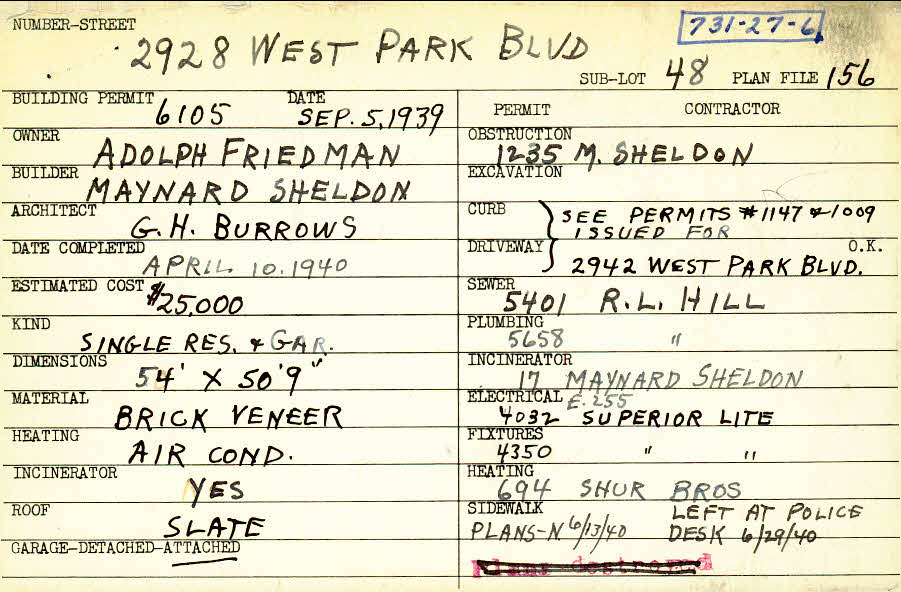 NUMBER-STREET
731-27-6
2928 WEST PARK BLVD
SUB-LOT 48 PLAN FILE 156
BUILDING PERMIT 6105 DATE SEP. 5, 1939
OWNER ADOLPH FRIEDMAN
BUILDER MAYNARD SHELDON
ARCHITECT G. H. BURROWS
DATE COMPLETED APRIL 10. 1940
ESTIMATED COST $25,000
KIND SINGLE RES. & GAR.
DIMENSIONS 54' X 50'9"
MATERIAL BRICK VENEER
HEATING AIR COND.
INCINERATOR YES
ROOF SLATE
GARAGE-DETACHED-ATTACHED
PERMIT CONTRACTOR
OBSTRUCTION 1235 M. SHELDON
EXCAVATION
CURB SEE PERMITS #1147 & 1009
ISSUED FOR
DRIVEWAY O.K.
2942 WEST PARK BLVD.
SEWER 5401 R.L. HILL
PLUMBING 5658 "
INCINERATOR 17 MAYNARD SHELDON
ELECTRICAL E.255
4032 SUPERIOR LITE
FIXTURES 4350 " "
HEATING 694 SHUR BROS
SIDEWALK LEFT AT POLICE
PLANS-N 6/13/40 DESK 6/29/40
plans destroyed